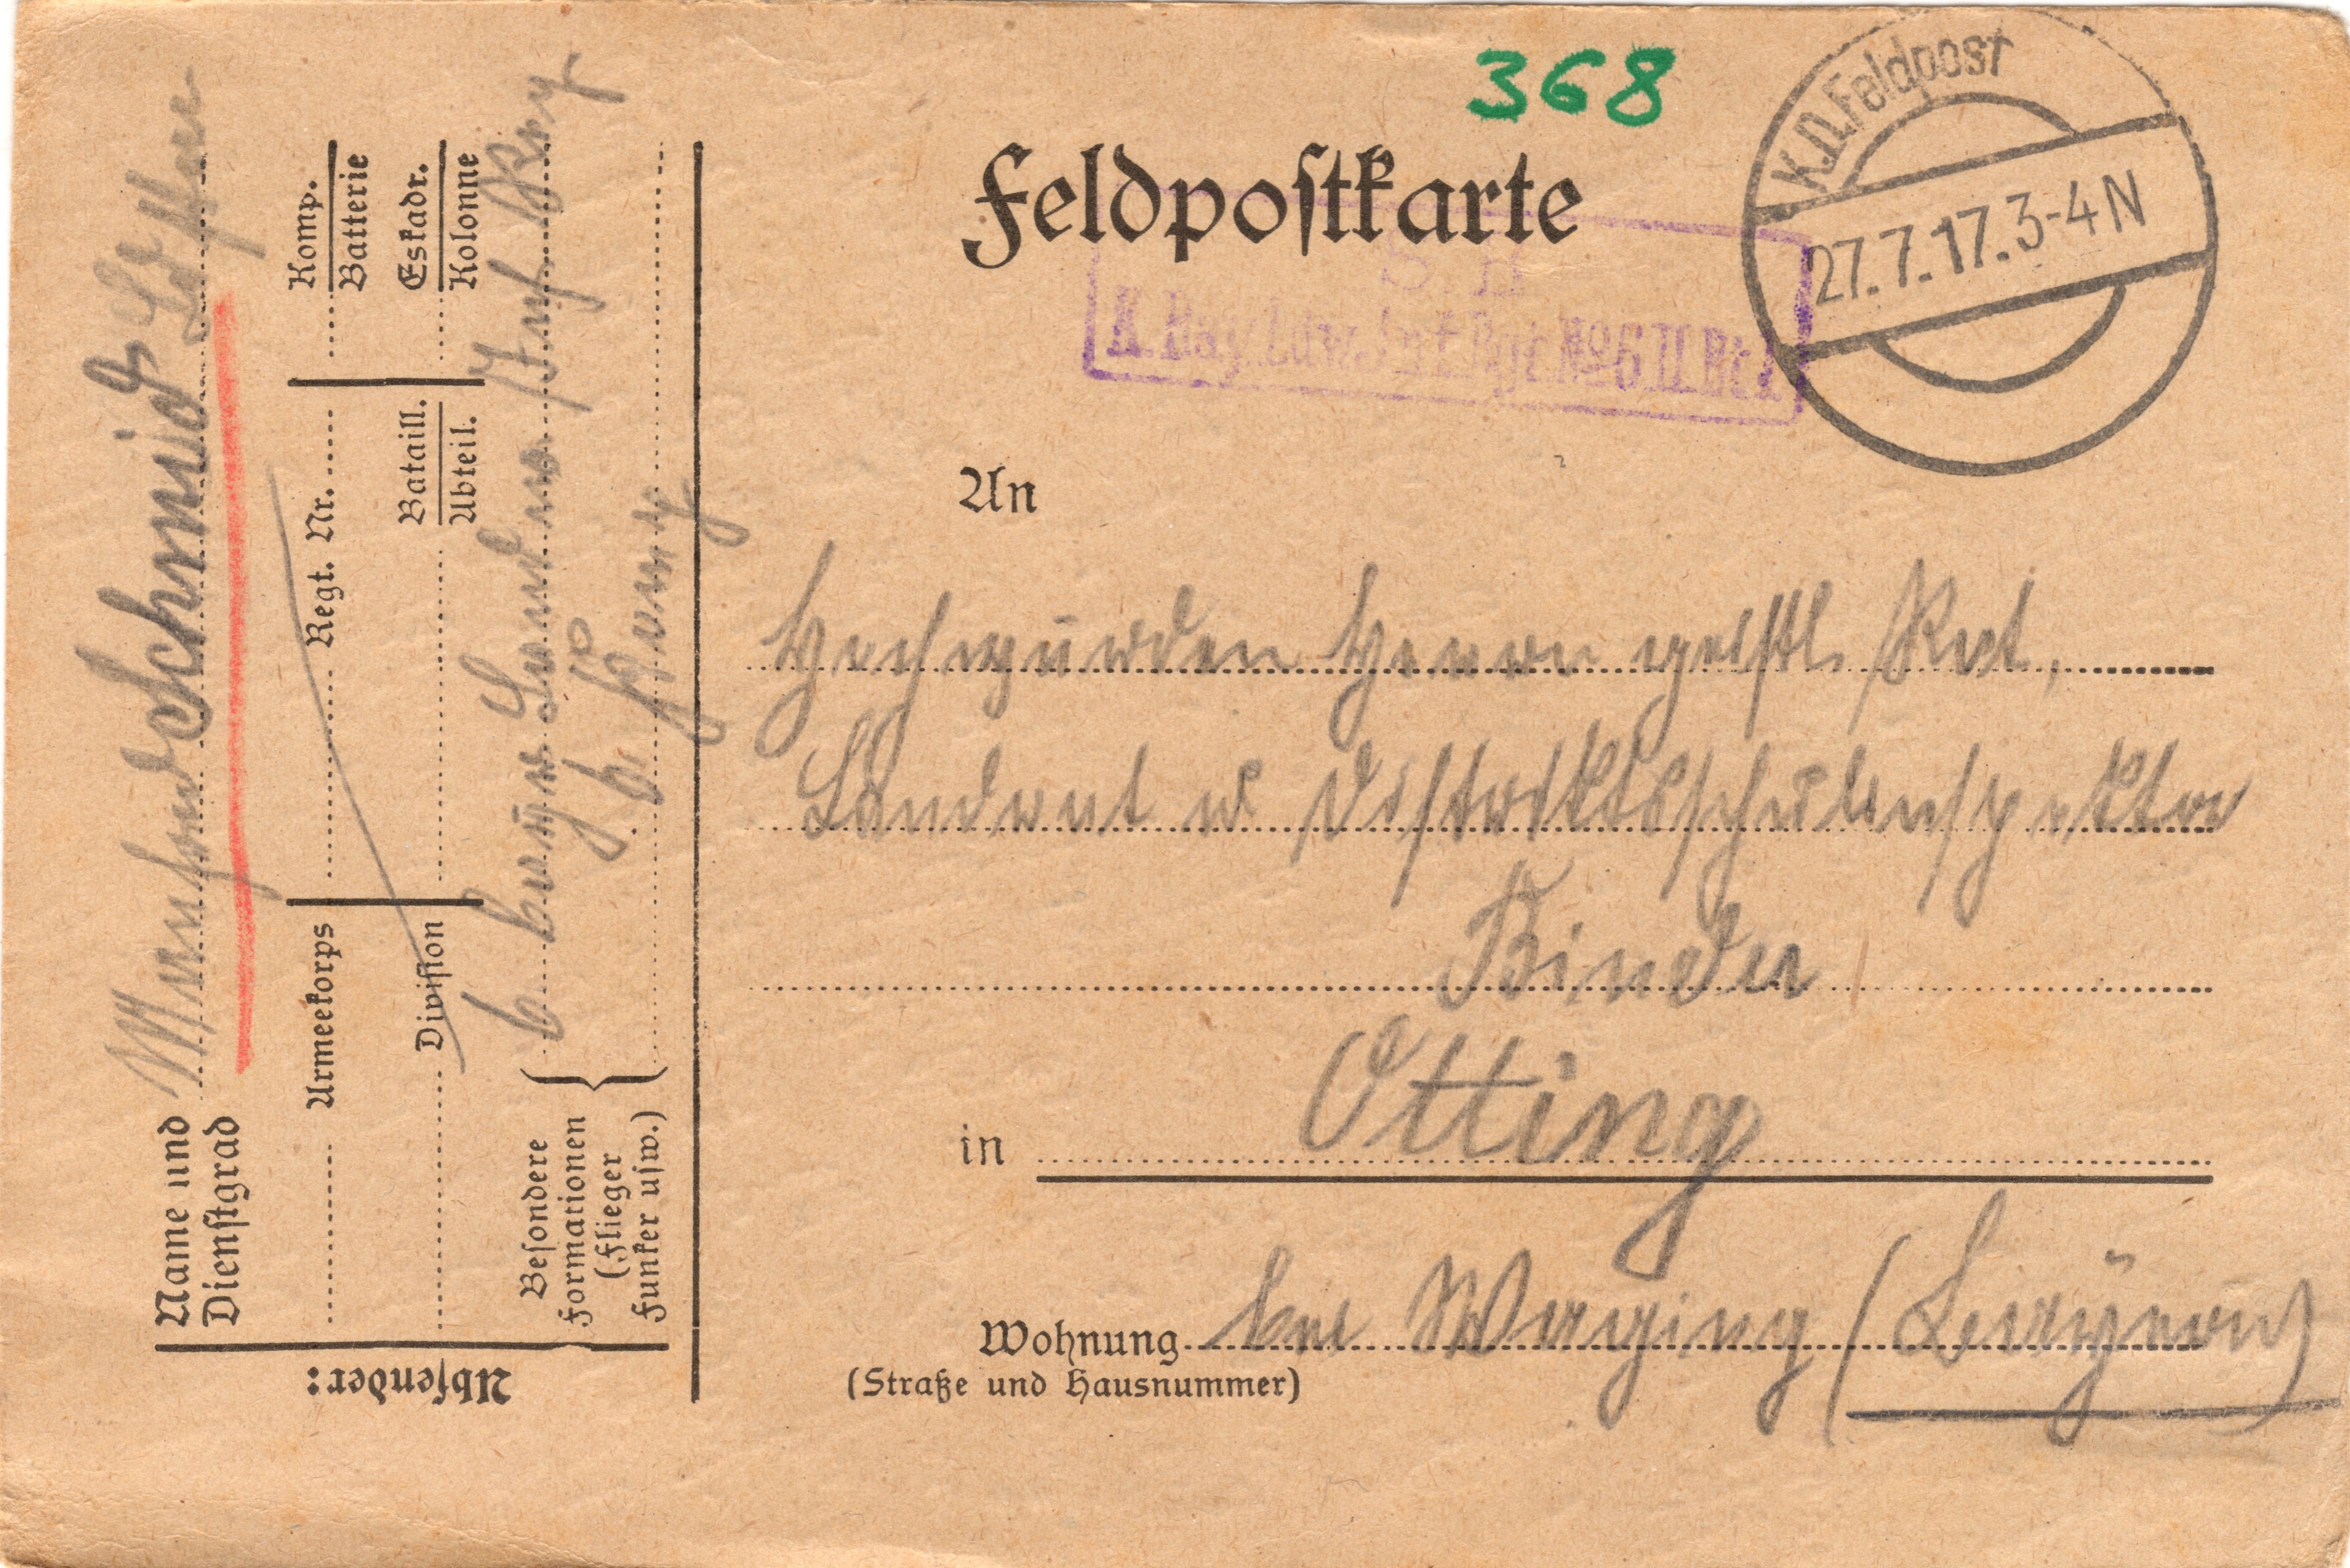 368
Feldpostkarte
K.D. Feldpost
27.7.17. 3-4 N
S. B.
K. Bay. Ldw. Inf. Rgt. No 6 II. Btl.
An
Hochwürden Herrn geistl. Rat,
Landrat u. Distriktsschulinspektor
Binder
in Otting
Wohnung bei Waging (Bayern)
(Straße und Hausnummer)
Absender:
Name und
Dienstgrad
Schmid
Armeekorps Regt. Nr. Komp.
Batterie
Division Bataill. Eskadr.
Abteil. Kolonne
Besondere
Formationen
(Flieger
Funker usw.)
6. bayr. Landw. Inf. Reg
6. Komp